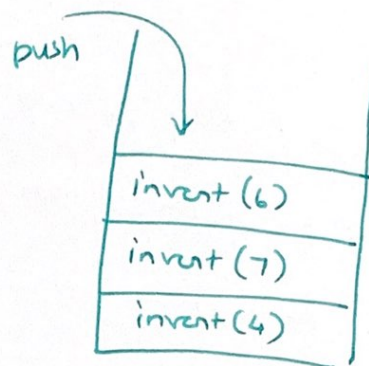 push
invent (6)
invent (7)
invent (4)